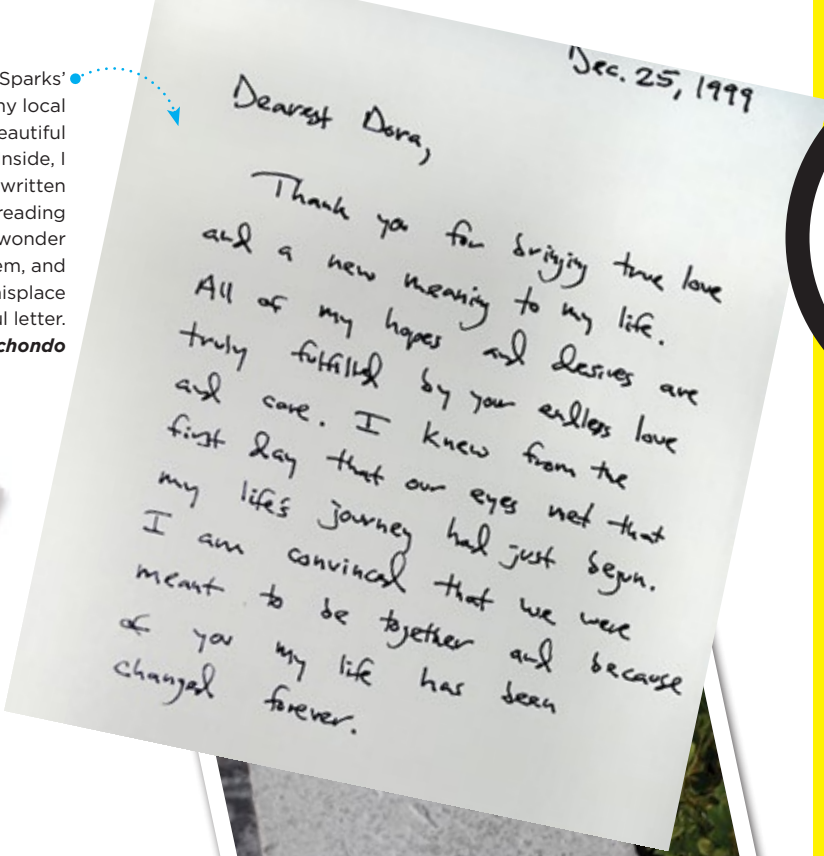 Sparks’
ny local
eautiful
nside, I
written
reading
wonder
em, and
isplace
ul letter.
chondo
Dec. 25, 1999
Dearest Dora,
Thank you for bringing true love
and a new meaning to my life.
All of my hopes and desires are
truly fulfilled by your endless love
and care. I knew from the
first day that our eyes met that
my life's journey had just begun.
I am convinced that we were
meant to be together and because
of you my life has been
changed forever.